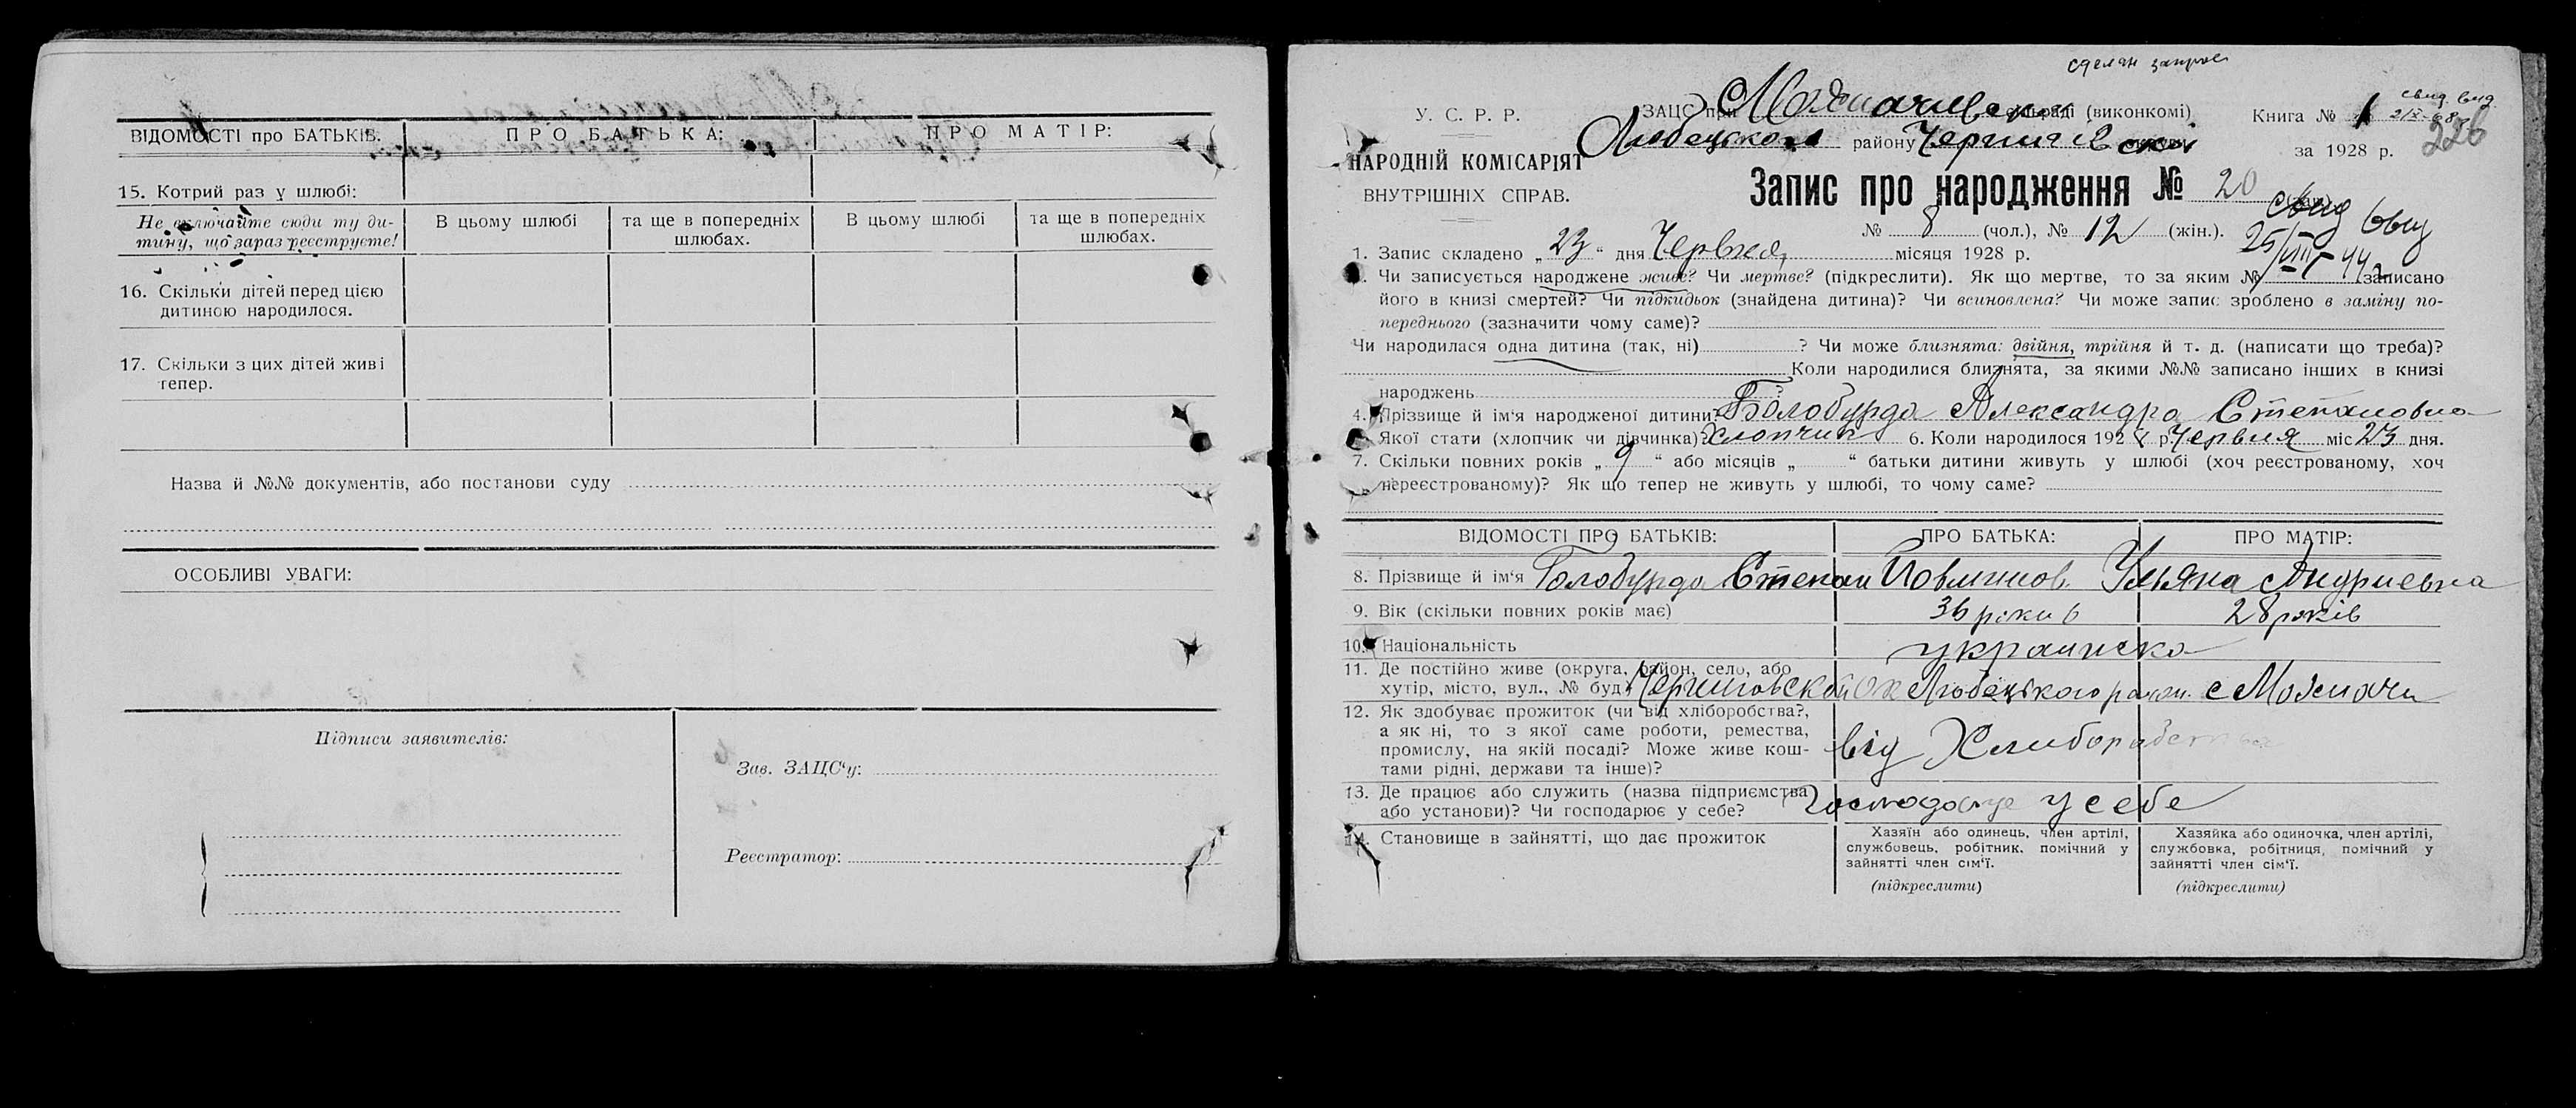 ВІДОМОСТІ про БАТЬКІВ: ПРО БАТЬКА: ПРО МАТІР:
15. Котрий раз у шлюбі:
Не включайте сюди ту ди-
тину, що зараз реєструєте!
В цьому шлюбі
та ще в попередніх
шлюбах.
В цьому шлюбі
та ще в попередніх
шлюбах.
16. Скільки дітей перед цією
дитиною народилося.
17. Скільки з цих дітей живі
тепер.
Назва й №№ документів, або постанови суду
ОСОБЛИВІ УВАГИ:
Підписи заявителів:
Зав. ЗАЦС‘у:
Реєстратор:
сделан запрос
У. С. Р. Р.
НАРОДНІЙ КОМІСАРІЯТ
ВНУТРІШНІХ СПРАВ.
ЗАЦС при сільраді (виконкомі)
Любецького району
Книга № 1
свид. выд.
за 1928 р.
226
Запис про народження № 20
свид выд
№ 8 (чол.), № 12 (жін.).
25/VIII 44
1. Запис складено „ 23 “ дня Червня місяця 1928 р.
Чи записується народжене живе? Чи мертве? (підкреслити). Як що мертве, то за яким № записано
його в книзі смертей? Чи підкидьок (знайдена дитина)? Чи всиновлена? Чи може запис зроблено в заміну по-
переднього (зазначити чому саме)?
Чи народилася одна дитина (так, ні) ? Чи може близнята: двійня, трійня й т. д. (написати що треба)?
Коли народилися близнята, за якими №№ записано інших в книзі
народжень
4. Прізвище й ім‘я народженої дитини? Голобурда Александра Степановна
Якої стати (хлопчик чи дівчинка)? Хлопчик 6. Коли народилося 1928 р. Червня міс 23 дня.
7. Скільки повних років „ 9 “ або місяців „ “ батьки дитини живуть у шлюбі (хоч реєстрованому, хоч
нереєстрованому)? Як що тепер не живуть у шлюбі, то чому саме?
ВІДОМОСТІ ПРО БАТЬКІВ: ПРО БАТЬКА: ПРО МАТІР:
8. Прізвище й ім‘я Голобурда Степан Ульяна Андриевна
9. Вік (скільки повних років має) 36 28 років
10. Національність украинска
11. Де постійно живе (округа, район, село, або
хутір, місто, вул., № буд. Черниговской ок Любецького район. сМожначи
12. Як здобуває прожиток (чи від хліборобства?,
а як ні, то з якої саме роботи, ремества,
промислу, на якій посаді? Може живе кош-
тами рідні, держави та інше)?
від Хлиборобства
13. Де працює або служить (назва підприємства
або установи)? Чи господарює у себе?
Господарує у себе
14. Становище в зайнятті, що дає прожиток
Хазяїн або одинець, член артілі,
службовець, робітник, помічний у
зайнятті член сім‘ї.
(підкреслити)
Хазяйка або одиночка, член артілі,
службовка, робітниця, помічний у
зайнятті член сім‘ї.
(підкреслити)